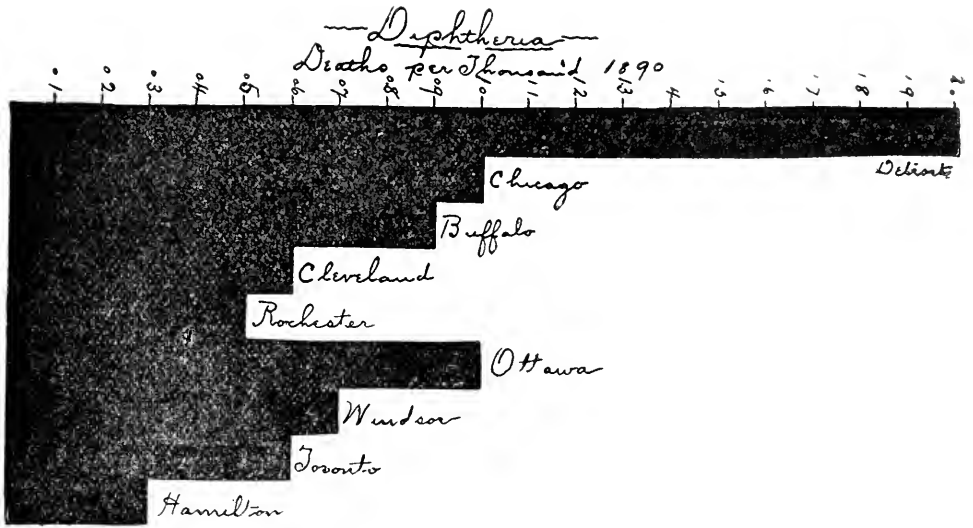 Diphtheria
Deaths per Thousand 1890
0.1 0.2 0.3 0.4 0.5 0.6 0.7 0.8 0.9 1.0 1.1 1.2 1.3 1.4 1.5 1.6 1.7 1.8 1.9 2.0
Detroit
Chicago
Buffalo
Cleveland
Rochester
Ottawa
Windsor
Toronto
Hamilton